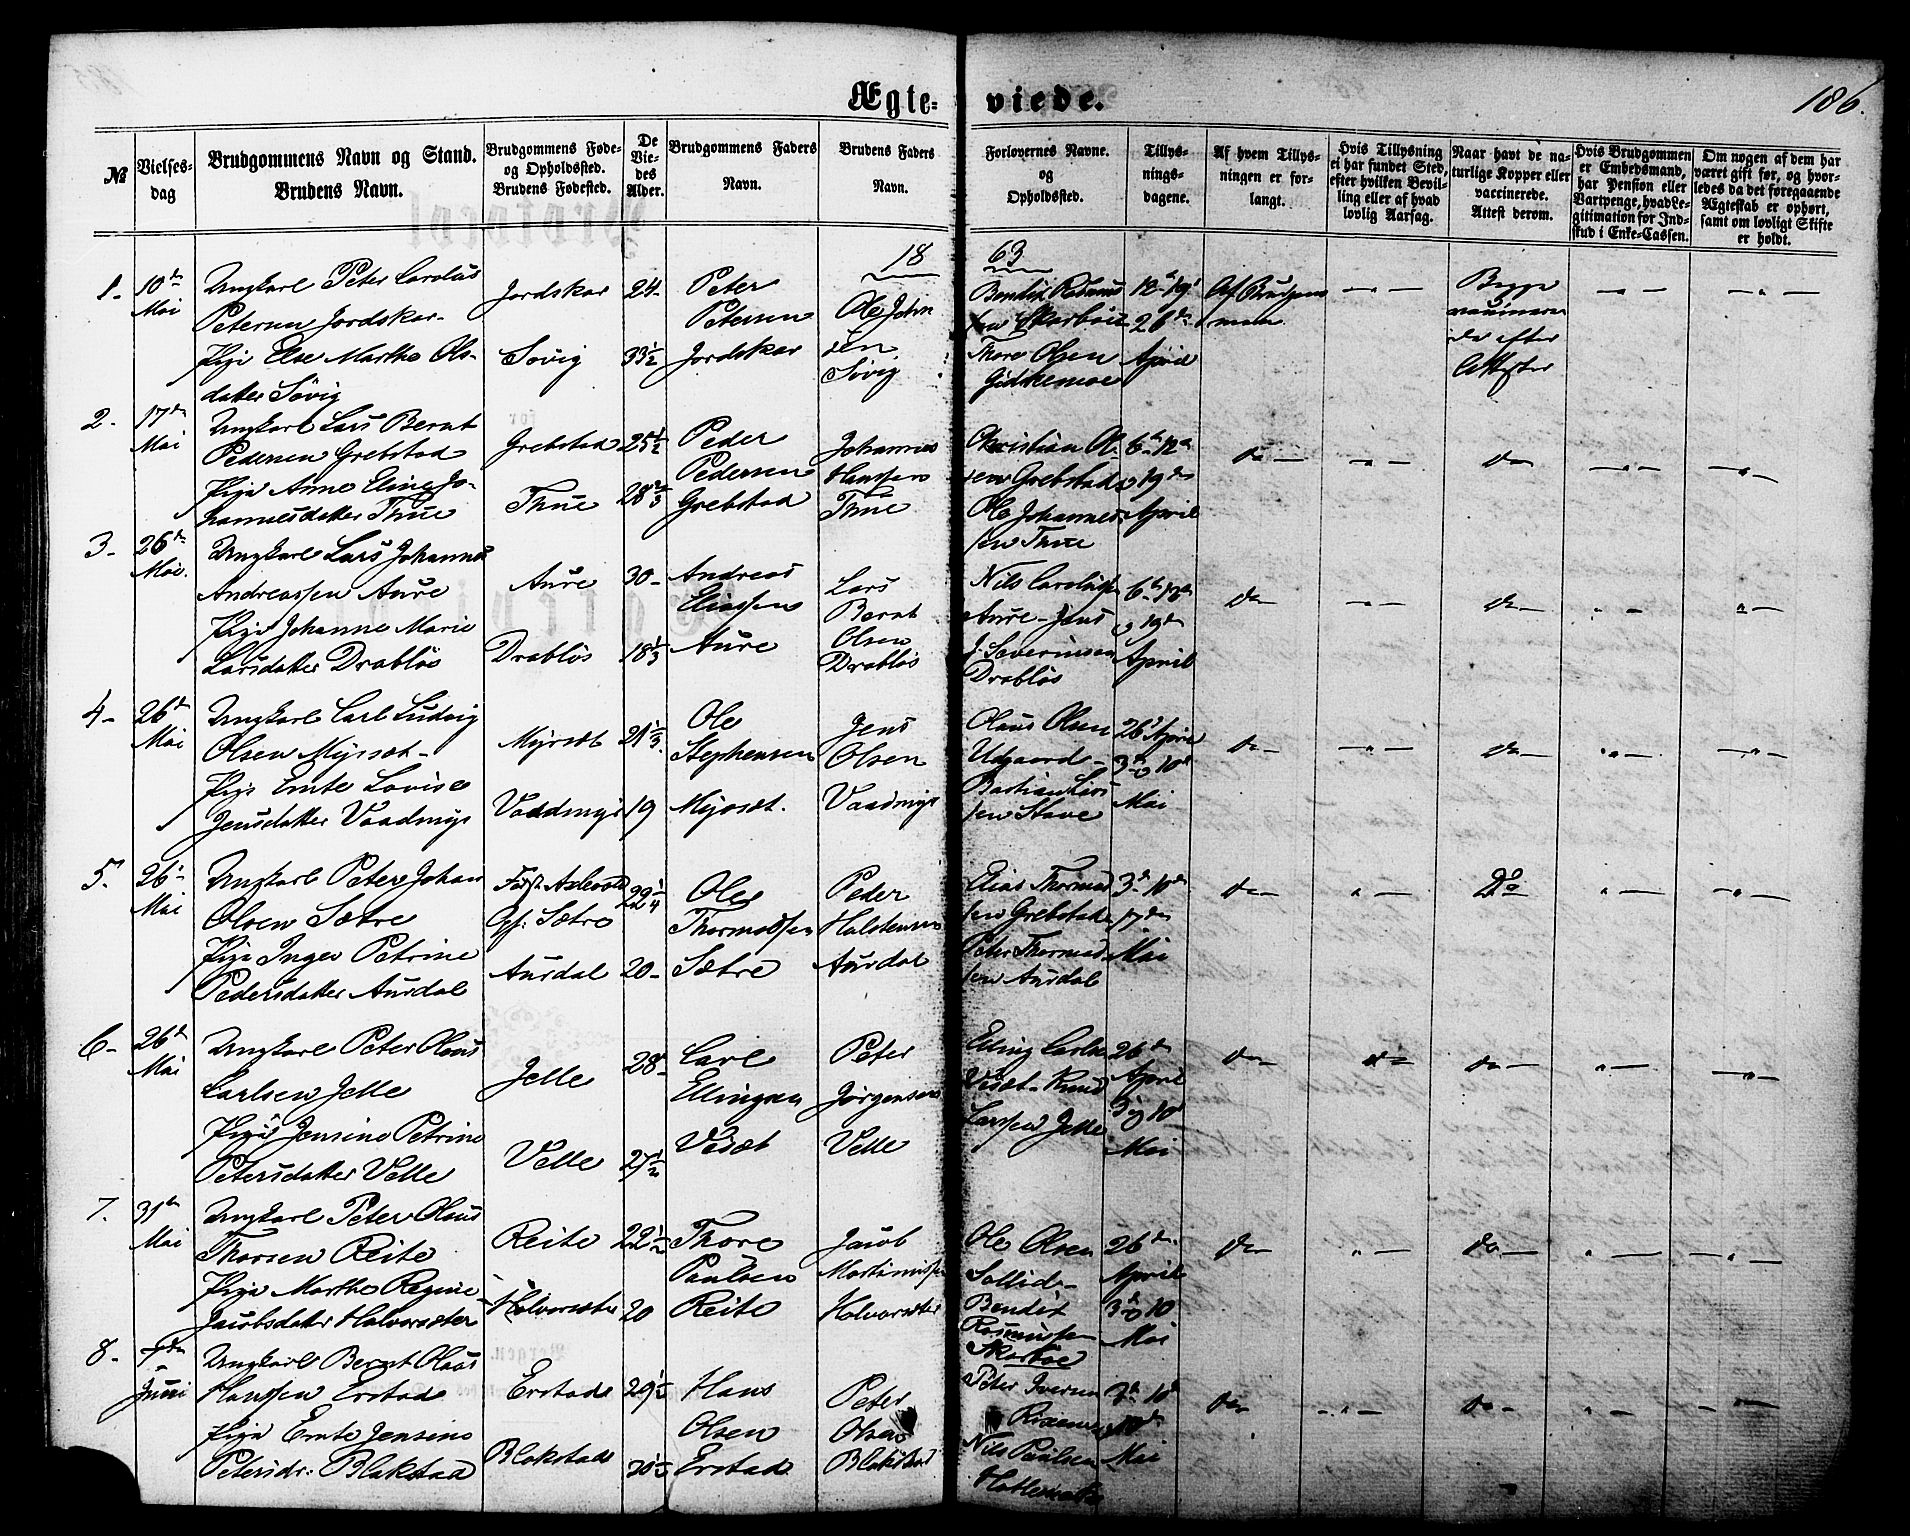 Ægte- viede.
186.
№
Vielses-
dag
Brudgommens Navn og Stand.
Brudens Navn.
Brudgommens Føde-
og Opholdsted.
Brudens Fødested.
De
Vie-
des
Alder.
Brudgommens Faders
Navn.
Brudens Faders
Navn.
Forlovernes Navne.
og
Opholdsted.
Tillys-
nings-
dagene.
Af hvem Tillys-
ningen er for-
langt.
Hvis Tillysning
ei har fundet Sted,
efter hvilken Bevil-
ling eller af hvad
lovlig Aarsag.
Naar havt de na-
turlige Kopper eller
vaccinerede.
Attest derom.
Hvis Brudgommen
er Embedsmand,
har Pension eller
Vartpenge, hvad Le-
gitimation for Ind-
skud i Enke-Cassen.
Om nogen af dem har
været gift før, og hvor-
ledes da det foregaaende
Ægteskab er ophørt,
samt om lovligt Skifte
er holdt.
18 63
1-
10de
Mai
Ungkarl Peter Carolus
Petersen Jordskar-
Pige Else Marthe Ols-
datter Søvig
Jordskar
Søvig
24-
33 1/2
Peter
Petersen
Jordskar
Ole John
sen
Søvig
Bendix Rasmus
sen Skarbøe
Thore Olsen
Gidskemoe
12te 19d
26de
April
Af Brudgom
men
Begge
vaccinere
de efter
Attester
2.
17de
Mai
Ungkarl Lars Bernt
Pedersen Grebstad
Pige Anne Eline Jo-
hannesdatter Thue
Grebstad
Thue
25 1/2
28 2/3
Peder
Pedersen
Grebstad
Johannes
Hanssen
Thue
Christian Ol-
sen Grebstad
Ole Johannes-
sen Thue
6te 12te
o 19de
April
do
do
3-
26de
Mai.
Ungkarl Lars Johannes
Andreassen Aure
Pige Johanne Marie
Larsdatter Drabløs
Aure
Drabløs
30-
18 1/3
Andreas
Eliassen
Aure
Lars
Bernt
Olsen
Drabløs
Nils Carolus
Aure - Jens
J. Severinsen
Drabløs
6te 12te
o 19de
April
do
do
4-
26de
Mai
Ungkarl Carl Ludvig
Olsen Myrsæt-
Pige Ernte Lovise
Jensdatter Vaadmyr
Myrsæt
Vaadmyr
21 1/3
19
Ole
Stephensen
Myrsæt.
Jens
Olsen
Vaadmyr
Olaus Olsen
Udgaard-
Bastian Lars
sen Stave
26d April
3de o 10d
Mai
do
do
5.
26d
Mai
Ungkarl Peter Johan
Olsen Sætre
Pige Inger Petrine
Pedersdatter Aursdal
Oph: Sætre
Aursdal
22 1/4
20-
Ole
Thormodsen
Sætre
Peder
Halstensen
Aursdal
Elias Thormod
sen Grebstad
Peter Thormod-
sen Aursdal
3de 10de
17de
Mai
do
Do
6-
26de
Mai
Ungkarl Peter Olaus
Carlsen Jelle
Pige Jensine Petrine
Petersdatter Velle
Jelle
Velle
28-
27 1/2
Carl
Ellingsen
Vesæt
Peter
Jørgensen
Velle
Elling Carlsen
Vesæt - Knud
Larssen Jelle
26de
April
3 o 10d
Mai
do
do
do
7.
31te
Mai
Ungkarl Peter Olaus
Thorsen Reite
Pige Marthe Regine
Jacobsdatter Halvorsæter
Reite
Halvorsæter
22 1/2
20
Thore
Paulsen
Reite
Jacob
Martinussen
Halvorsæter
Ole Olsen
Sollid-
Bendix
Rasmussen
Skarbøe
26de
April
3de o 10
Mai
do
do
8-
7de
Juni
Ungkarl Bernt Olaus
Hanssen Erstad
Pige Ernte Jensine
Petersdr: Blakstad
Erstad
Blakstad
Hans
Olsen
Erstad
Peter
Olsen
Blakstad
Peter Iversen
Nils Paulsen
3de 10de
Mai
do
do